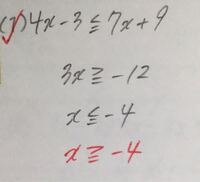 (7) 4x-3≦7x+9
3x≧-12
x≦-4
x≧-4